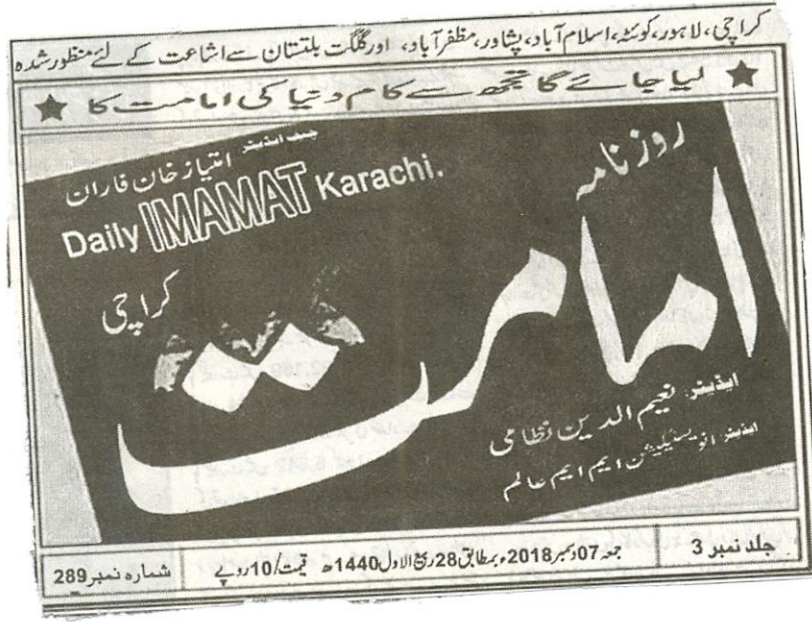 کراچی، لاہور، کوئٹہ، اسلام آباد، پشاور، مظفرآباد، اور گلگت بلتستان سے اشاعت کے لئے منظور شدہ
★ لیا جائے گا تجھ سے کام دنیا کی امامت کا ★
چیف ایڈیٹر امتیاز خان فاران
Daily IMAMAT Karachi.
روزنامہ
امامت
کراچی
ایڈیٹر: نعیم الدین نظامی
ایڈیٹر: انویسٹیگیشن ایم ایم عالم
جلد نمبر 3
جمعہ 07 دسمبر 2018ء بمطابق 28 ربیع الاول 1440ھ قیمت/10 روپے
شمارہ نمبر 289